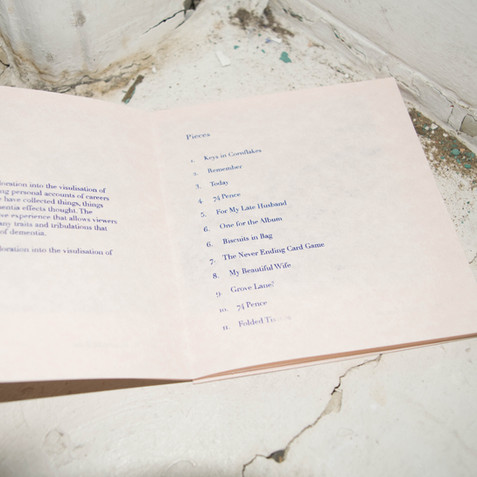 loration into the visulisation of
ng personal accounts of careers
e have collected things, things
entia effects thought. The
ve experience that allows viewers
any traits and tribulations that
of dementia.
loration into the visulisation of
Pieces
1. Keys in Cornflakes
2. Remember
3. Today
4. 74 Pence
5. For My Late Husband
6. One for the Album
6. Biscuits in Bag
7. The Never Ending Card Game
8. My Beautiful Wife
9. Grove Lane?
10. 74 Pence
11. Folded